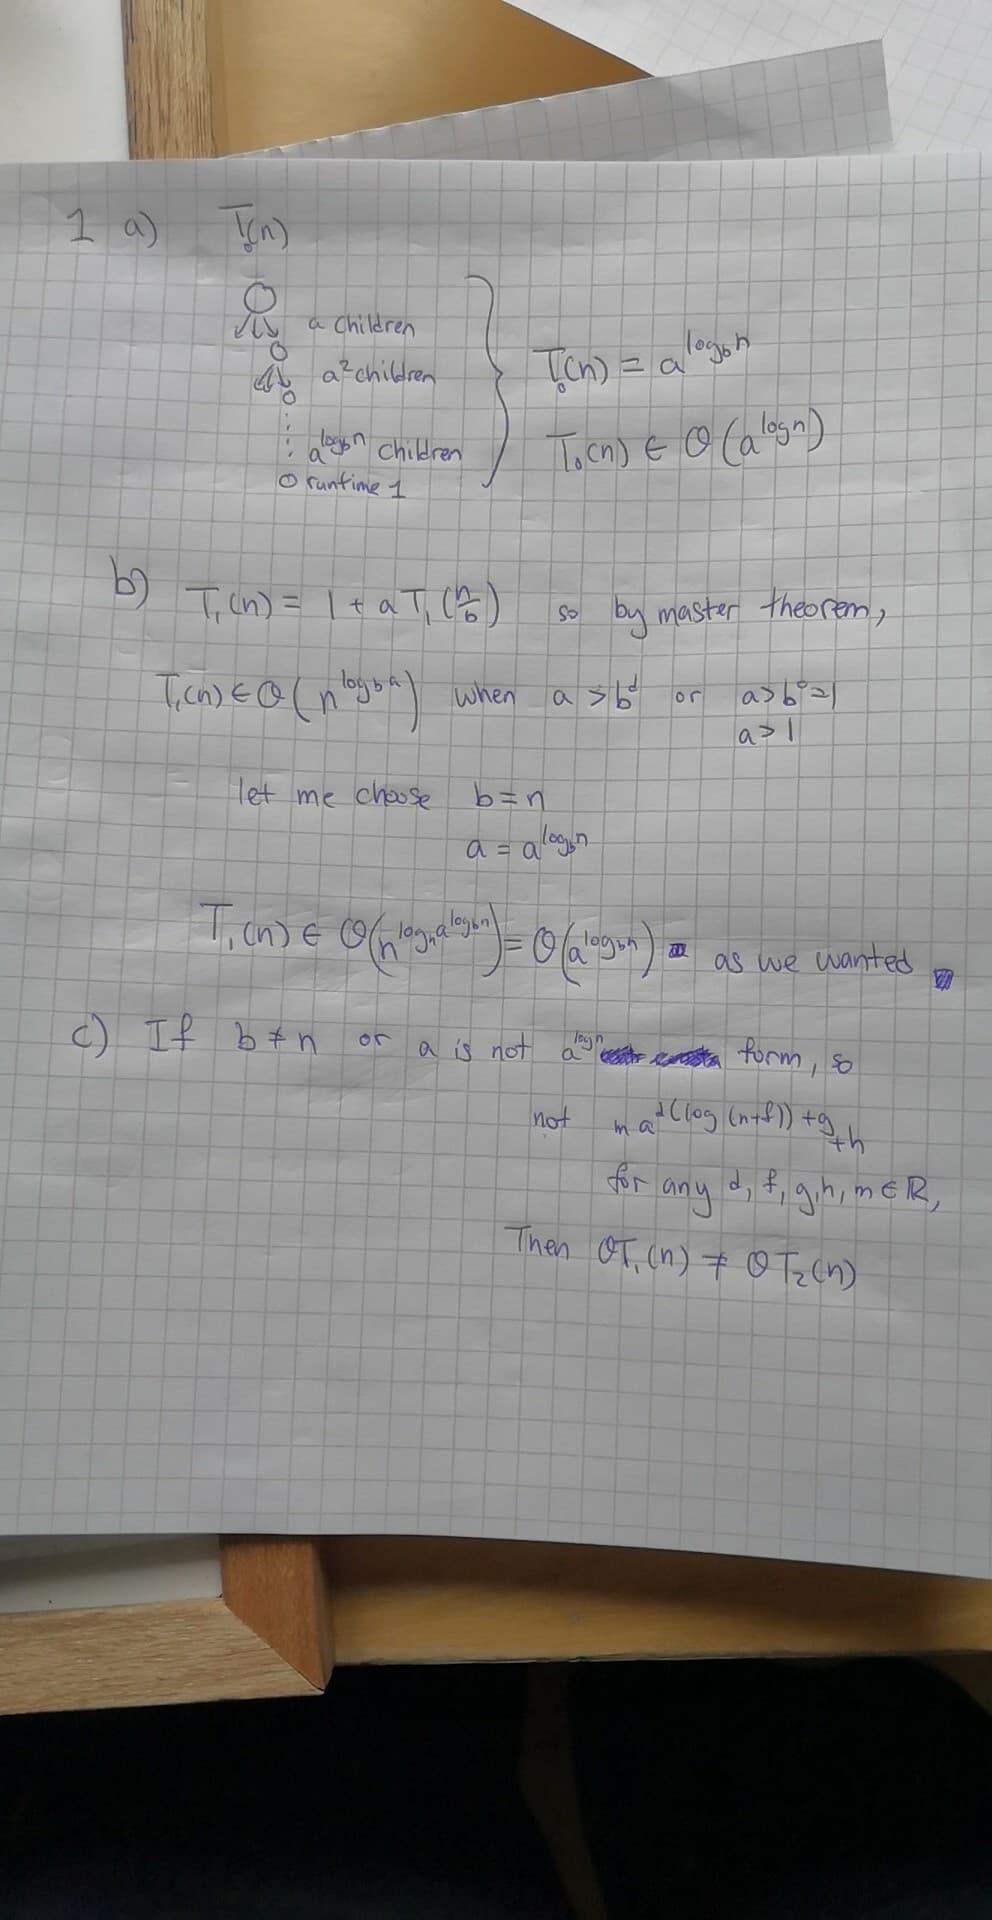 1 a) T₀(n)
a children
a² children
a^{log_b n} children
runtime 1
T₀(n) = a^{log_b n}
T₀(n) ∈ Θ(a^{log n})
b) T₁(n) = 1 + a T₁(n/b) so by master theorem,
T₁(n) ∈ Θ(n^{log_b a}) when a > b^d or a > b⁰ = 1
a > 1
let me choose b = n
a = a^{log_b n}
T₁(n) ∈ Θ(n^{log_n a^{log_b n}}) = Θ(a^{log_b n}) as we wanted
c) If b ≠ n or a is not a^{log n} form, so
not m a^{d(log(n+f))+g} + h
for any d, f, g, h, m ∈ ℝ,
Then ΘT₁(n) ≠ ΘT₂(n)